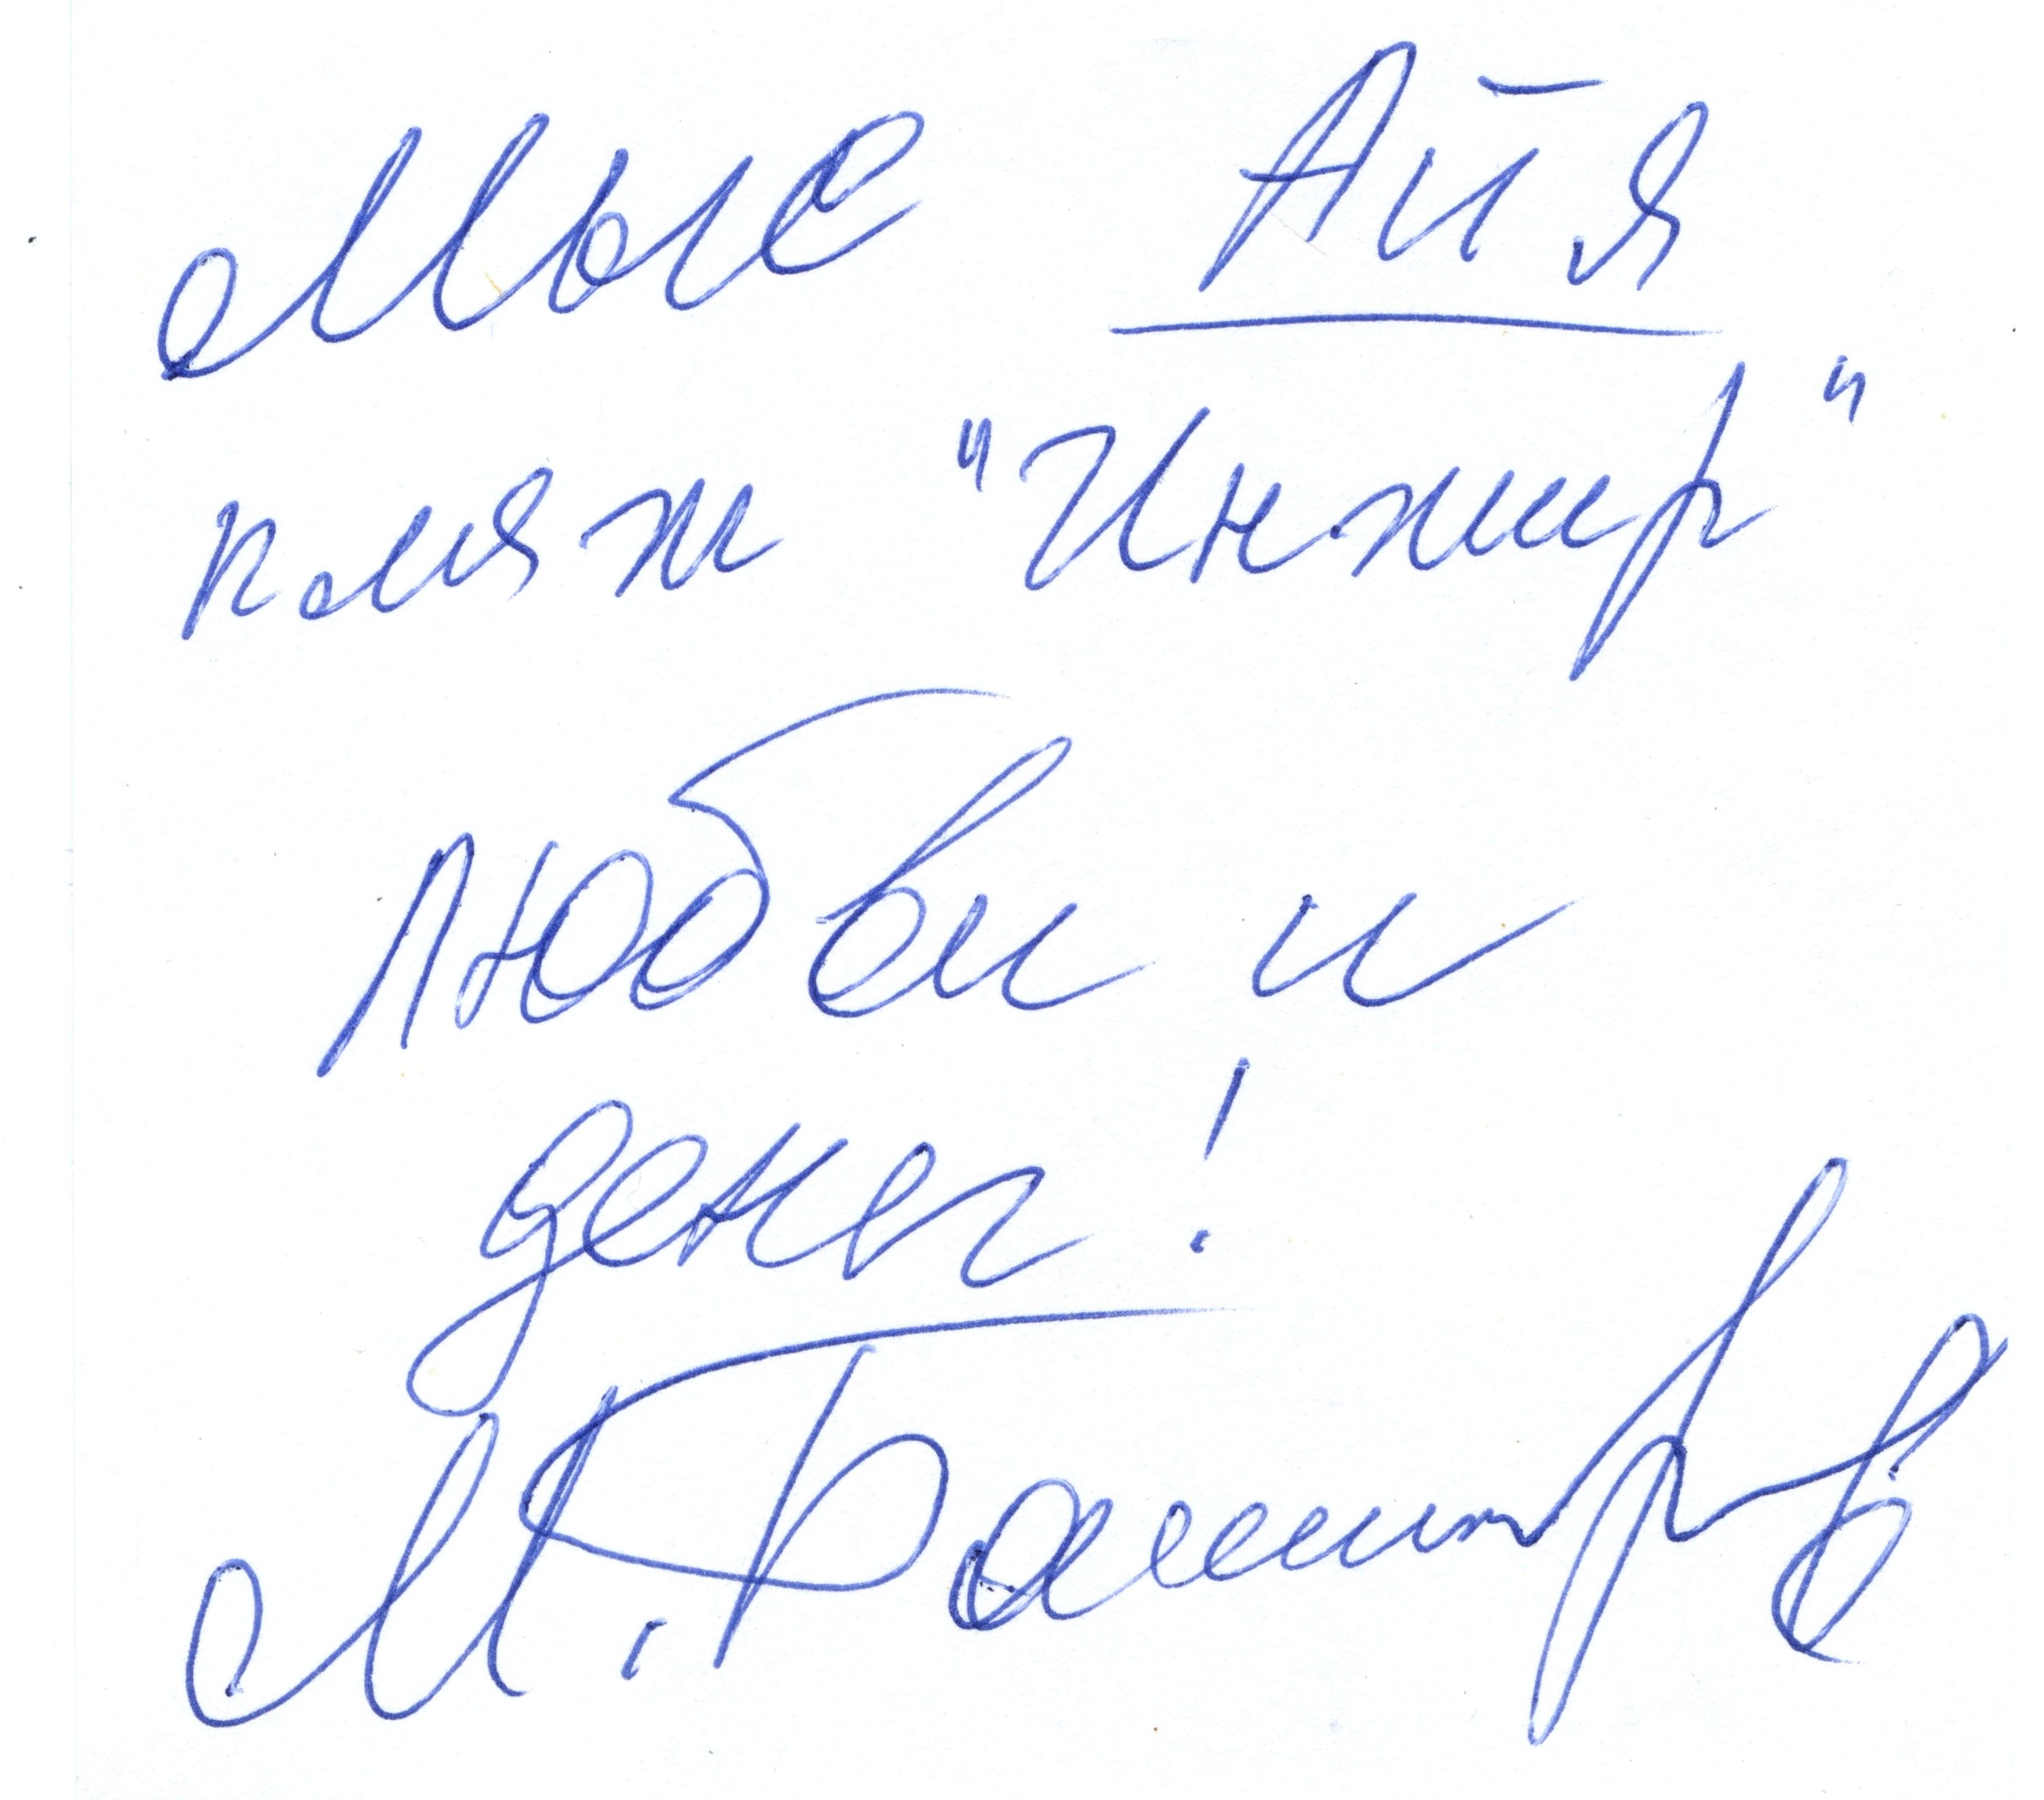 Мыс Айя
пляж "Инжир"
Любви и
денег!
М.